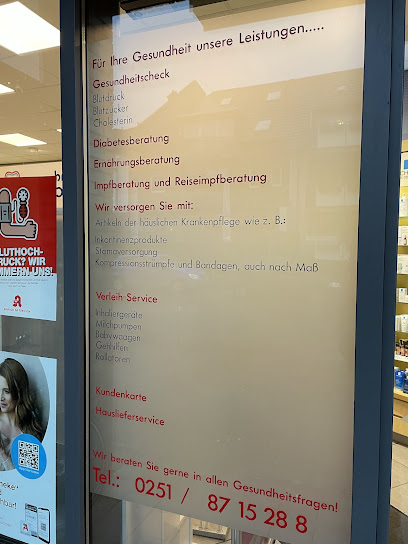 Für Ihre Gesundheit unsere Leistungen.....
Gesundheitscheck
Blutdruck
Blutzucker
Cholesterin
Diabetesberatung
Ernährungsberatung
Impfberatung und Reiseimpfberatung
Wir versorgen Sie mit:
Artikeln der häuslichen Krankenpflege wie z. B.:
Inkontinenzprodukte
Stomaversorgung
Kompressionsstrümpfe und Bandagen, auch nach Maß
Verleih-Service
Inhaliergeräte
Milchpumpen
Babywaagen
Gehhilfen
Rollatoren
Kundenkarte
Hauslieferservice
Wir beraten Sie gerne in allen Gesundheitsfragen!
Tel.: 0251 / 87 15 28 8
LUTHOCH-
RUCK? WIR
MMERN UNS!